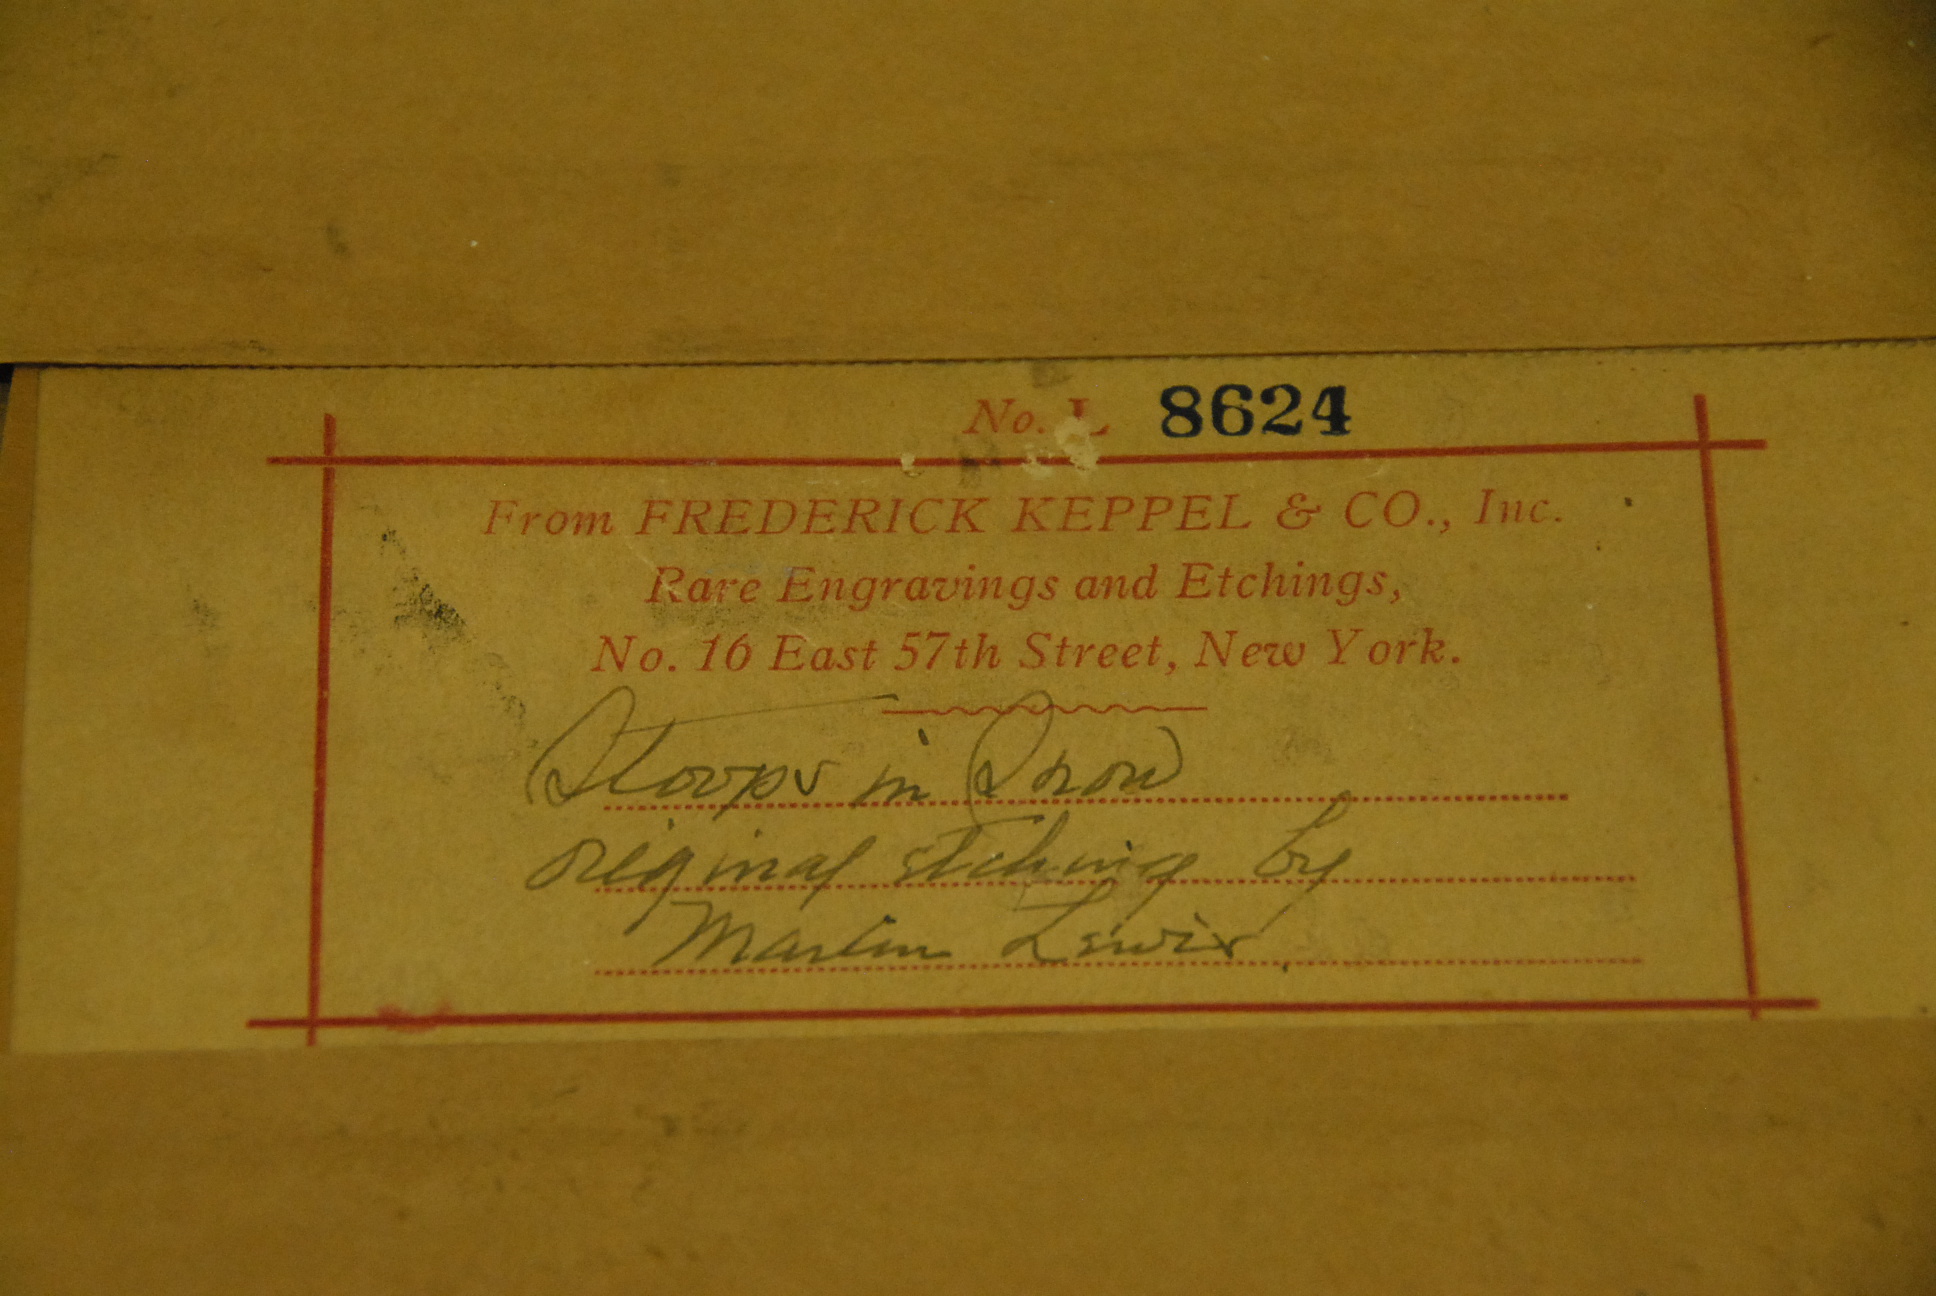 No. L 8624
From FREDERICK KEPPEL & CO., Inc.
Rare Engravings and Etchings,
No. 16 East 57th Street, New York.
Stoops in Snow
original etching by
Martin Lewis.